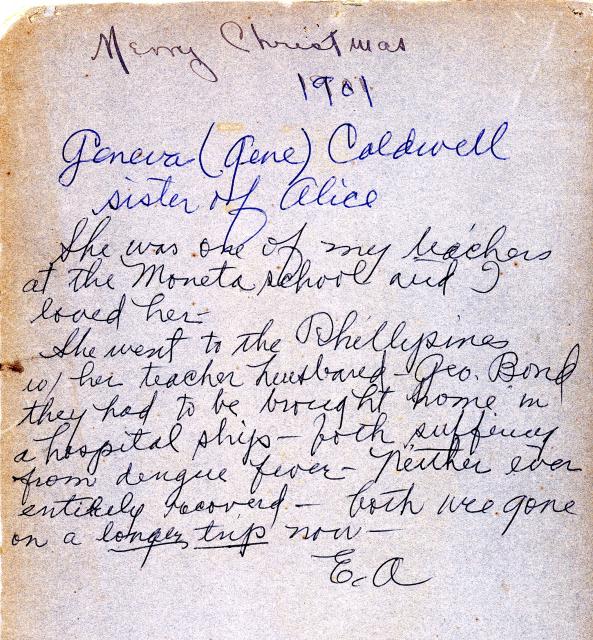 Merry Christmas
1901
Geneva (Gene) Caldwell
sister of Alice
She was one of my teachers
at the Moneta school and I
loved her-
She went to the Phillypines
w/ her teacher husband - Geo. Bond
they had to be brought home in
a hospital ship - both suffering
from dengue fever - Neither ever
entirely recoverd - both are gone
on a longer trip now -
E.A